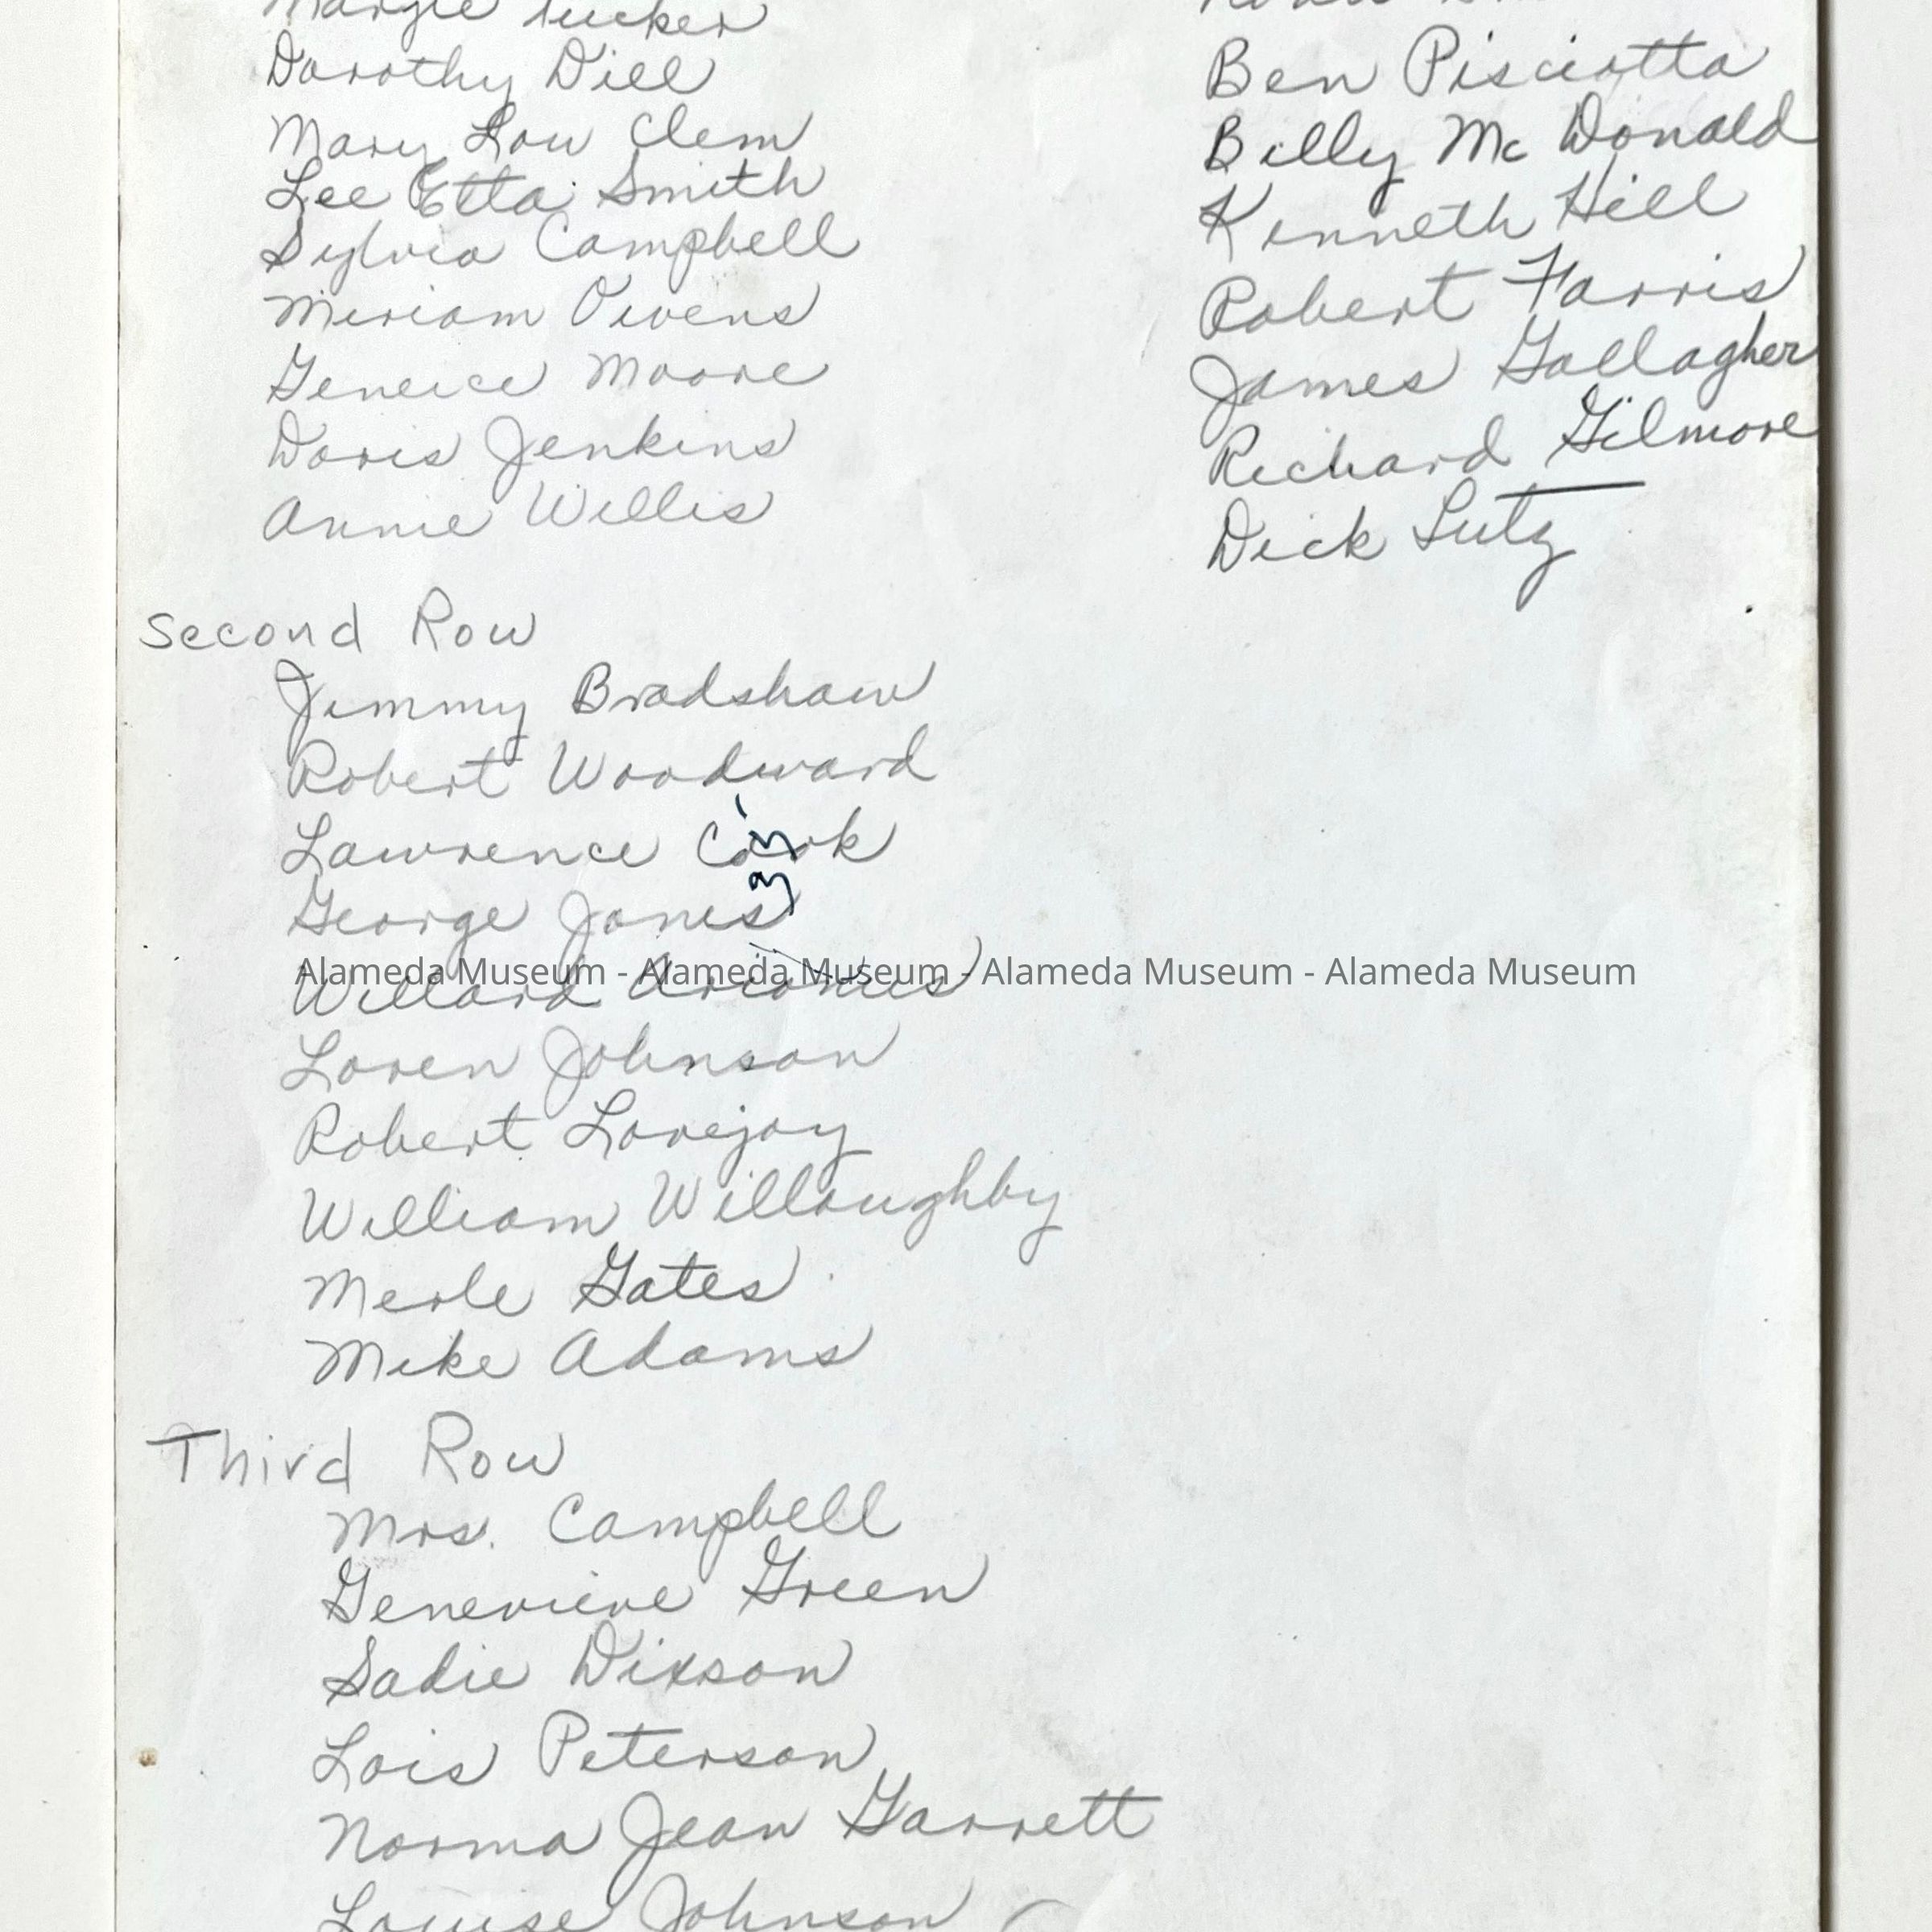 Margie Tucker
Dorothy Dill
Mary Lou Clem
Lee Etta Smith
Sylvia Campbell
Miriam Owens
Geneice Moore
Doris Jenkins
Annie Willis
Second Row
Jimmy Bradshaw
Robert Woodward
Lawrence Cook
George Jones
Willard
Alameda Museum - Alameda Museum - Alameda Museum - Alameda Museum
Loren Johnson
Robert Lovejoy
William Willoughby
Merle Gates
Mike Adams
Third Row
Mrs. Campbell
Genevieve Green
Sadie Dixson
Lois Peterson
Norma Jean Garrett
Louise Johnson
Ben Pisciotta
Billy Mc Donald
Kenneth Hill
Robert Farris
James Gallagher
Richard Gilmore
Dick Lutz